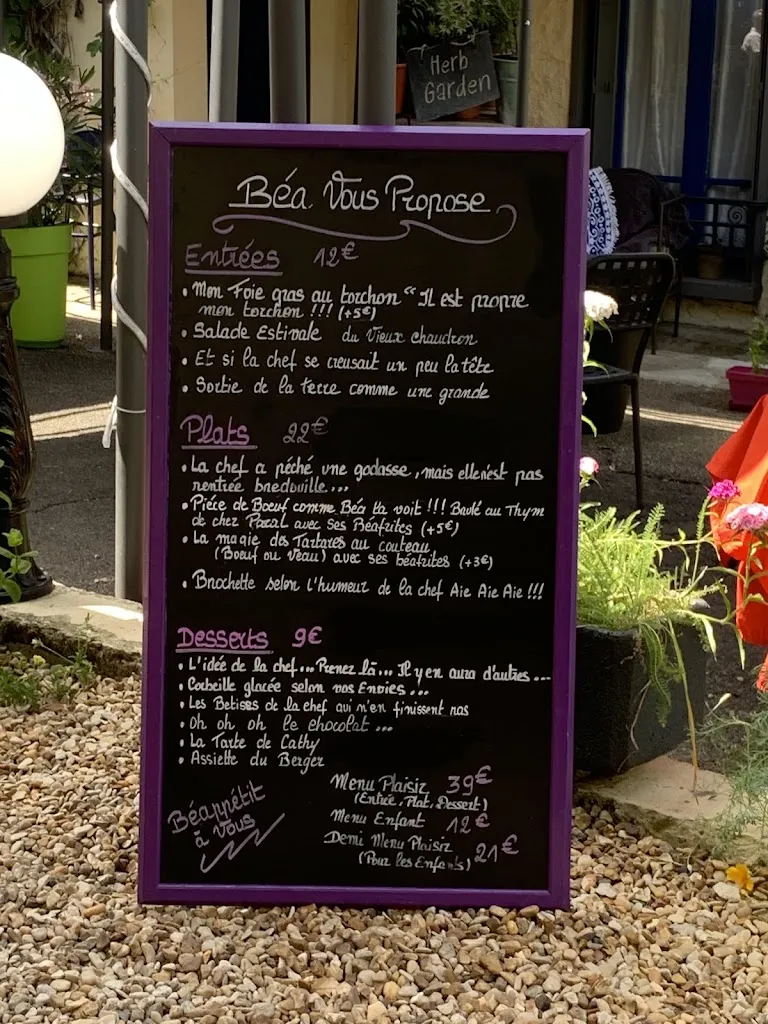 Herb
Garden
Béa Vous Propose
Entrées 12€
• Mon Foie gras au torchon "Il est propre
mon torchon !!! (+5€)
• Salade Estivale du Vieux chaudron
• Et si la chef se creusait un peu la tête
• Sortie de la terre comme une grande
Plats 22€
• La chef a pêché une godasse, mais elle n'est pas
rentrée bredouille...
• Piéce de Boeuf comme Béa la voit !!! Brulé au Thym
de chez Pascal avec ses Béafrites (+5€)
• La magie des Tartares au couteau
(Boeuf ou Veau) avec ses béafrites (+3€)
• Brochette selon l'humeur de la chef Aie Aie Aie !!!
Desserts 9€
• L'idée de la chef... Prenez là... Il y en aura d'autres ...
• Corbeille glacée selon vos Envies ...
• Les Betises de la chef qui n'en finissent pas
• Oh oh oh le chocolat ...
• La Tarte de Cathy
• Assiette du Berger
Menu Plaisir 39€
(Entrée, Plat, Dessert)
Menu Enfant 12€
Demi Menu Plaisir 21€
(Pour les Enfants)
Béappétit
à Vous